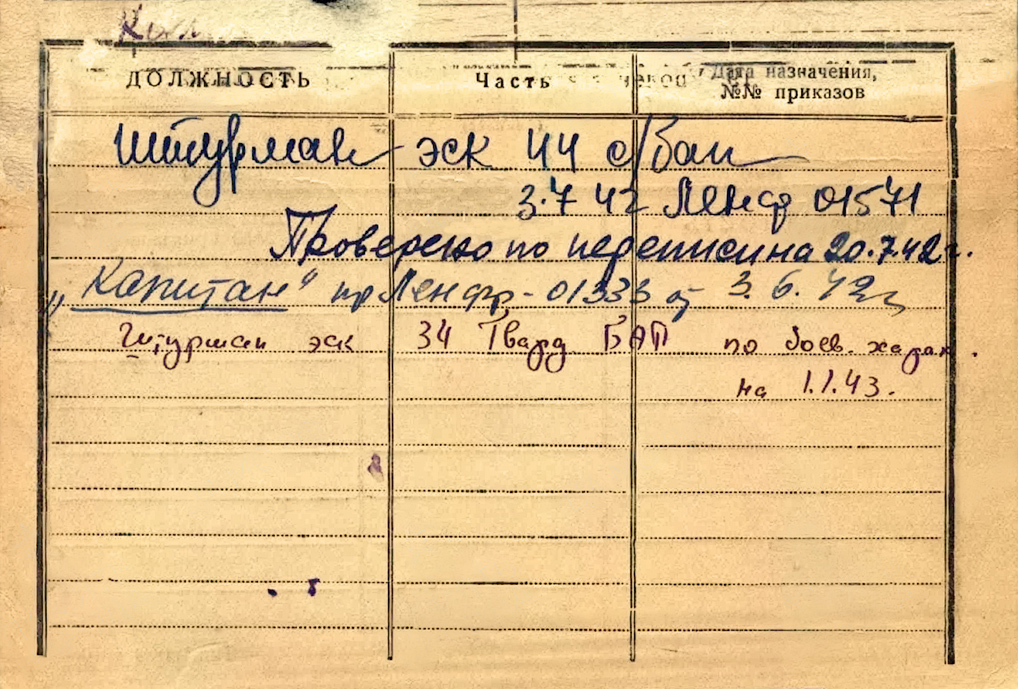 ДОЛЖНОСТЬ Часть Дата назначения, №№ приказов
Штурман эск 44 с/бап
3.7 42 Ленф 01571
Проверено по переписи на 20.7.42 г.
„Капитан" пр Ленфр-01333 от 3.6.42г
Штурман эск 34 Гвард БАП по боев. харак.
на 1.1.43.